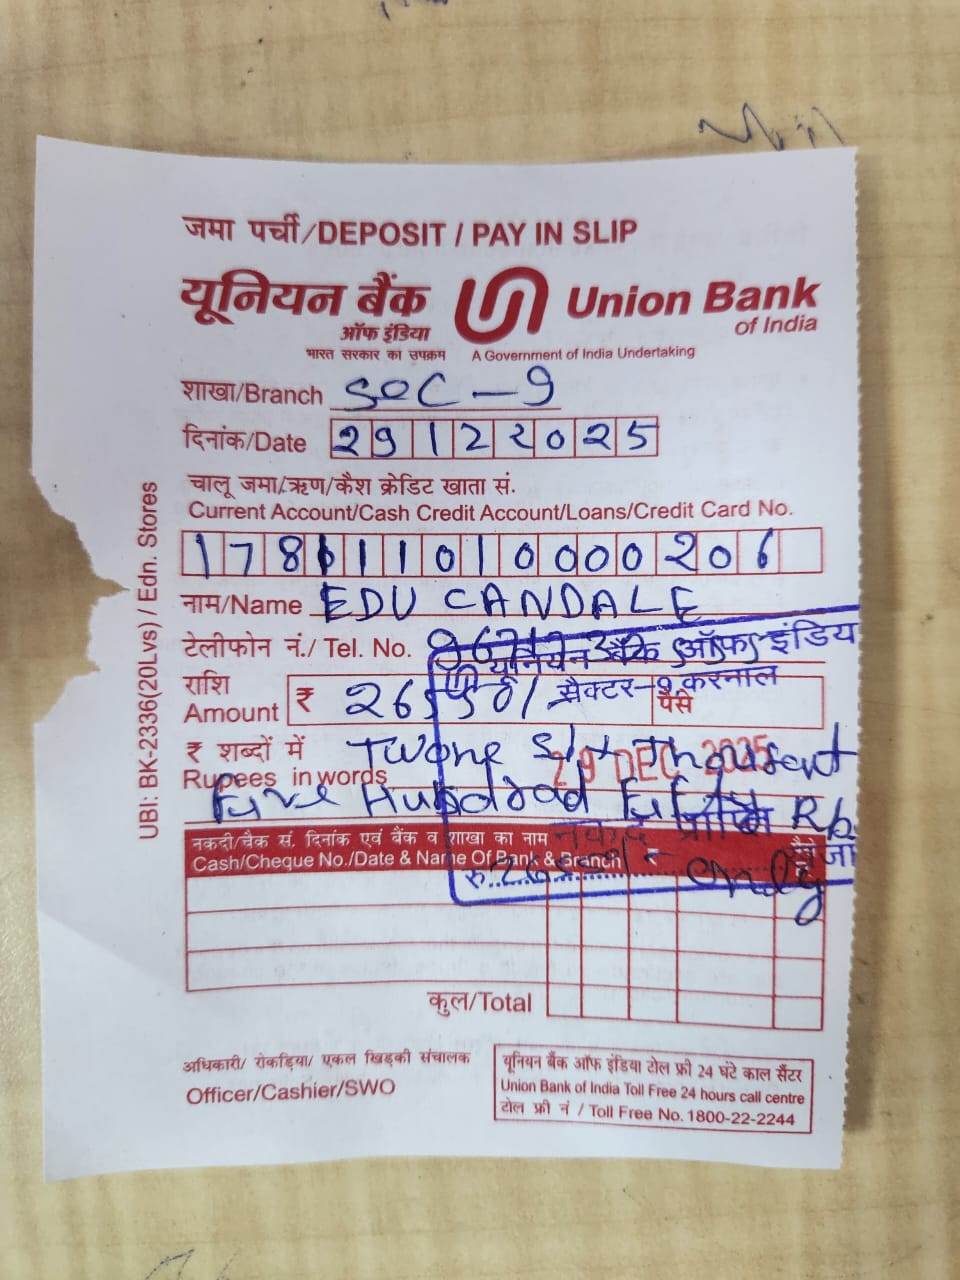 जमा पर्ची/DEPOSIT / PAY IN SLIP
यूनियन बैंक Union Bank
ऑफ इंडिया of India
भारत सरकार का उपक्रम A Government of India Undertaking
शाखा/Branch Sec-9
दिनांक/Date 29122025
चालू जमा/ऋण/कैश क्रेडिट खाता सं.
Current Account/Cash Credit Account/Loans/Credit Card No.
178111010000206
नाम/Name EDU CANDALE
टेलीफोन नं./ Tel. No.
यूनियन बैंक ऑफ इंडिय
सैक्टर-9 करनाल
राशि
Amount ₹ 26550/ पैसे
₹ शब्दों में
Rupees in words Twone Six Thousent
29 DEC 2025
Five Hundred Fifty Rp.
नकद प्राप्ति
only
नकदी/चैक सं. दिनांक एवं बैंक व शाखा का नाम
Cash/Cheque No./Date & Name Of Bank & Branch ₹
रु.
कुल/Total
अधिकारी/ रोकड़िया/ एकल खिड़की संचालक
Officer/Cashier/SWO
यूनियन बैंक ऑफ इंडिया टोल फ्री 24 घंटे काल सैंटर
Union Bank of India Toll Free 24 hours call centre
टोल फ्री नं / Toll Free No. 1800-22-2244
UBI: BK-2336(20Lvs) / Edn. Stores